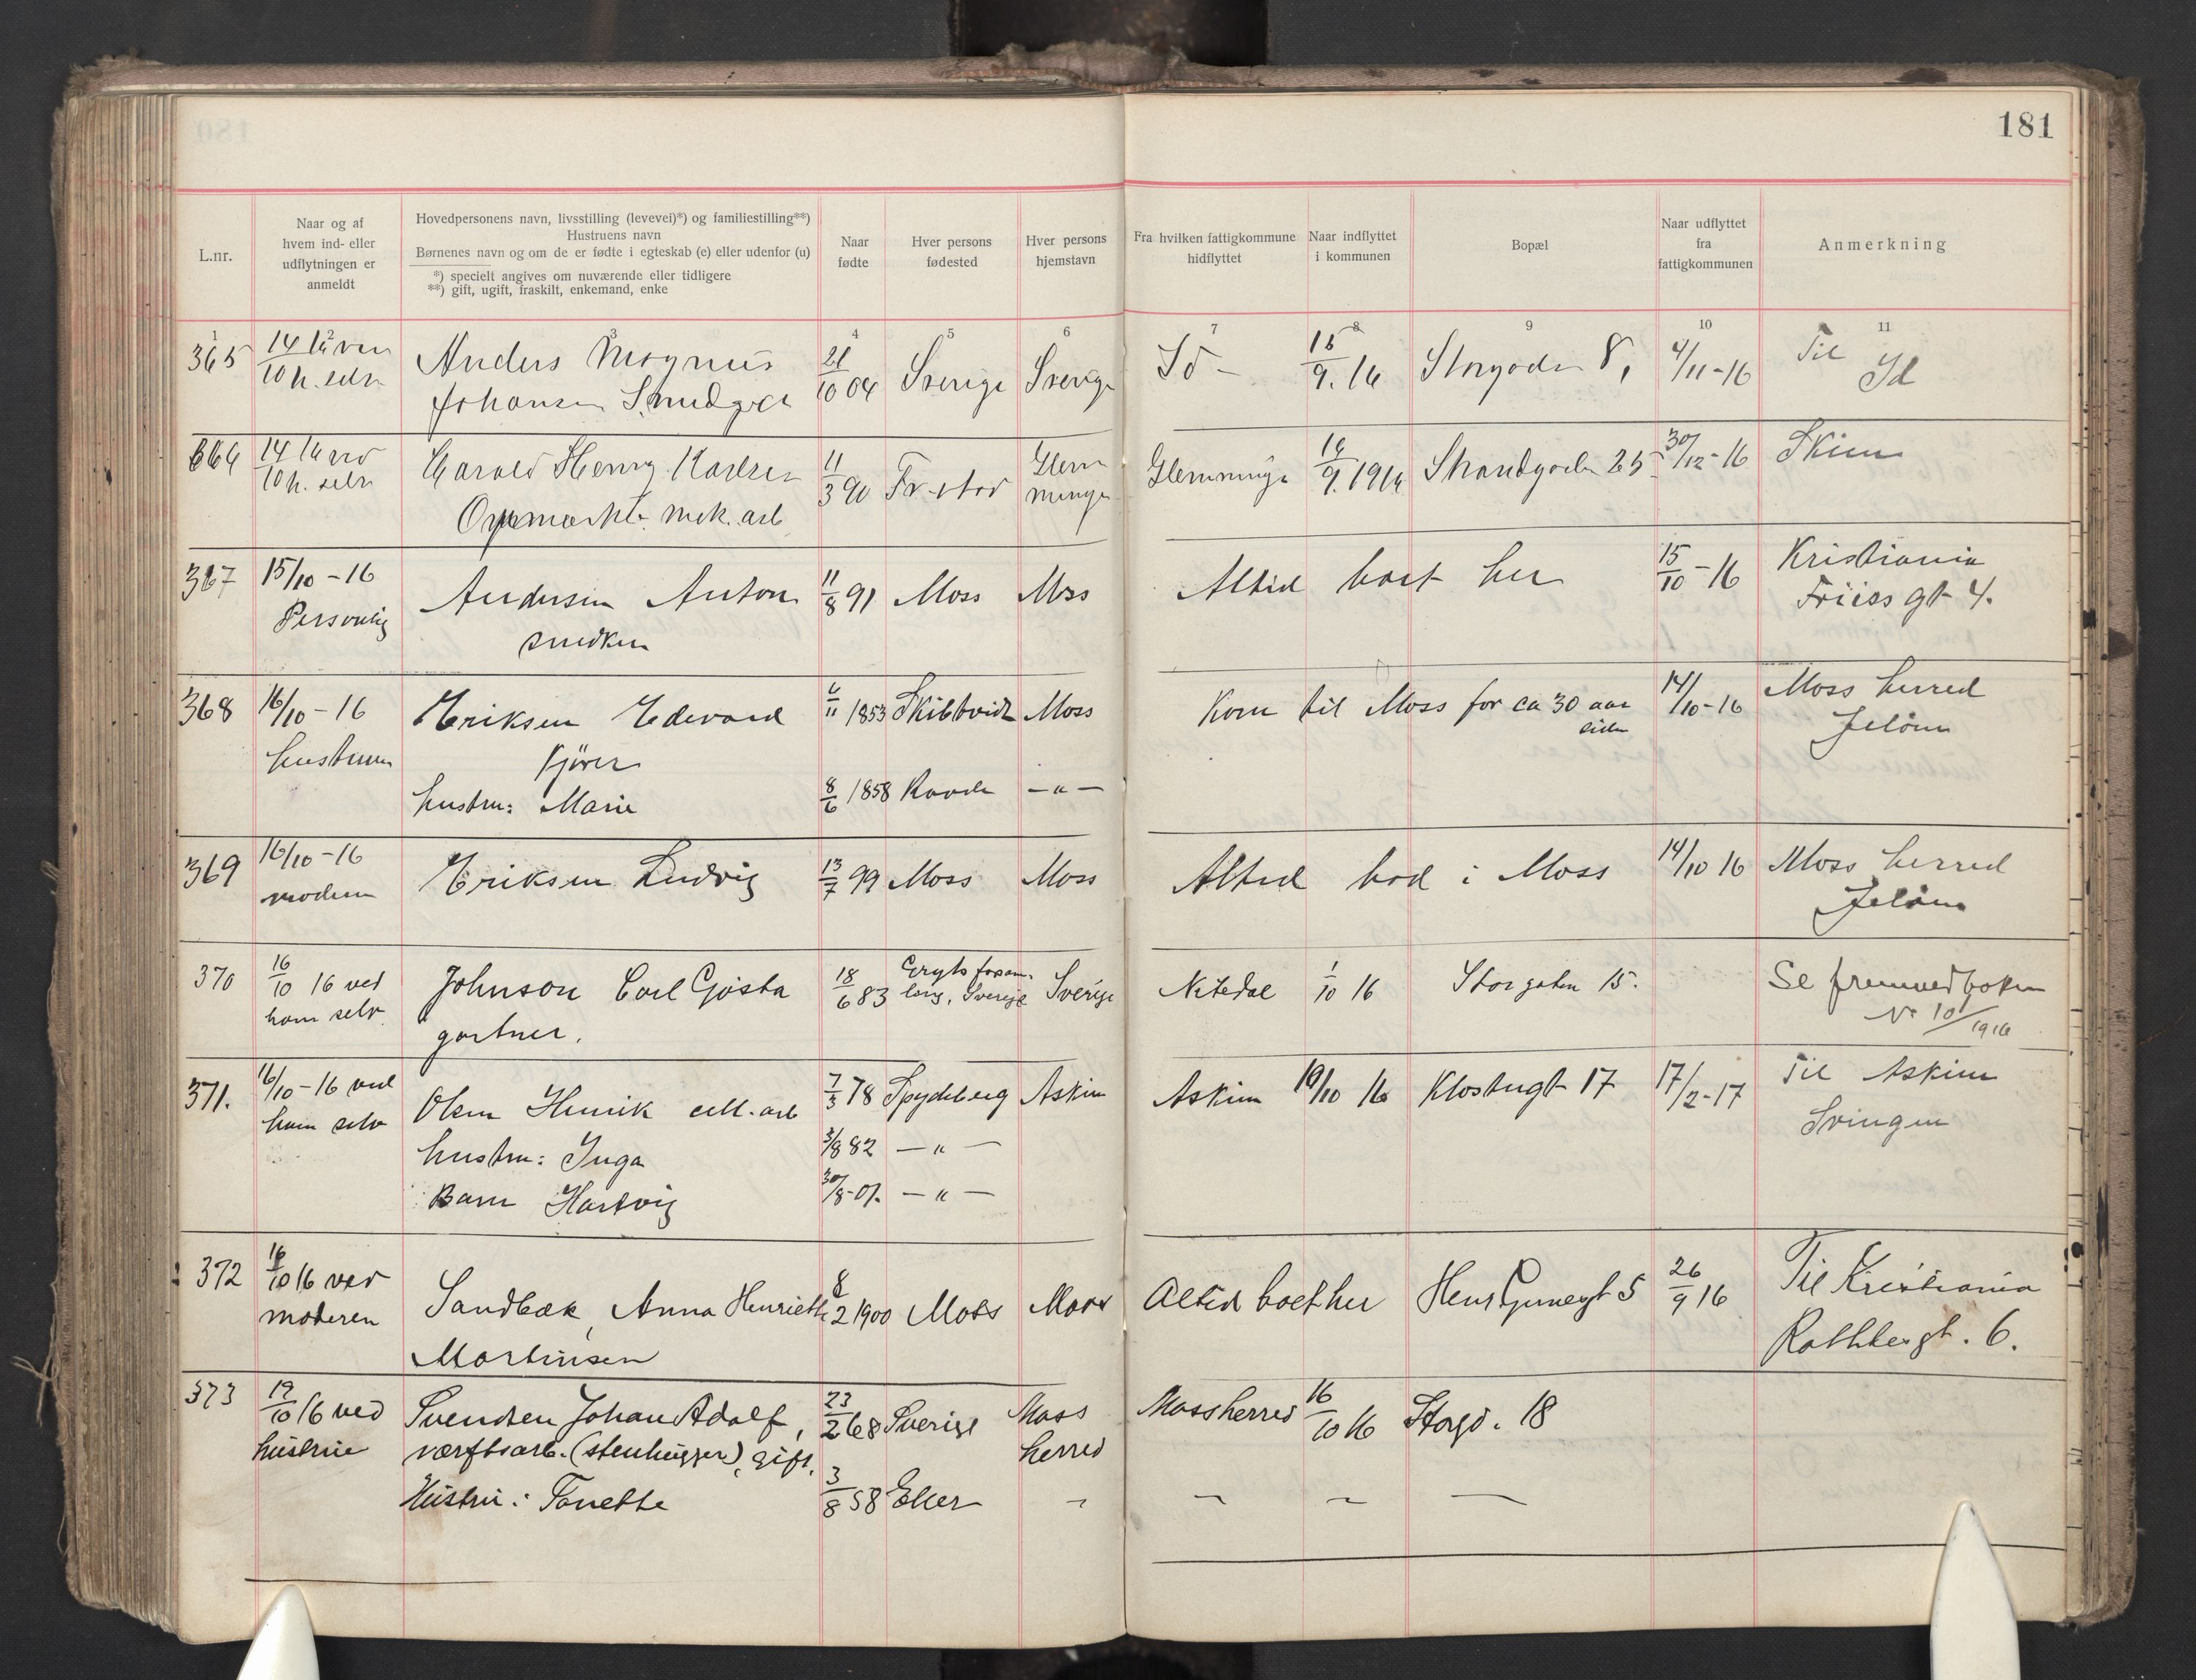 181
L.nr.
Naar og af
hvem ind- eller
udflytningen er
anmeldt
Hovedpersonens navn, livsstilling (levevei)*) og familiestilling**)
Hustruens navn
Børnenes navn og om de er fødte i egteskab (e) eller udenfor (u)
*) specielt angives om nuværende eller tidligere
**) gift, ugift, fraskilt, enkemand, enke
Naar
fødte
Hver persons
fødested
Hver persons
hjemstavn
Fra hvilken fattigkommune
hidflyttet
Naar indflyttet
i kommunen
Bopæl
Naar udflyttet
fra
fattigkommunen
Anmerkning
1 2 3 4 5 6 7 8 9 10 11
365 14/10 16 ved Anders Magnus 21/10 04 Sverige Sverige Id - 15/9. 16 Storgaden 8, 4/11-16 Til
h. selv Johansen Id
366 14/10 16 ved Harald Henry Karlsen 11/3 90 Fr.stad Glem Glemminge 16/9. 1916 Strandgaden 25 30/12-16 Skien
h. selv minge
mek. arb
367 15/10-16 Andersen Anton 11/8 91 Moss Moss Altid boet her 15/10-16 Kristiania
Personlig snedker Friisgt 4.
368 16/10-16 Eriksen Edevard 6/11 1853 Skibtvidt Moss Kom til Moss for ca 30 aar 14/10-16 Moss herred
siden Jeløen
hustruen Kjører
hustru: Marie 8/6 1858 Raade -"-
369 16/10-16 Eriksen Ludvig 13/7 99 Moss Moss Altid bod i Moss 14/10 16 Moss herred
moderen Jeløen
370 16/10 16 ved Johnson Carl Gösta 18/6 83 Gryts försam- Sverige Nitedal 1/10 16 Storgaten 15. Se fremmedboken
ham selv ling, Sverige No 101/1916
gartner.
371. 16/10-16 ved Olsen Henrik cell. arb 7/3 78 Spydeberg Askim Askim 10/10 16 Klostergt 17 17/2-17 Til Askim
ham selv Svingen
hustru: Inga 3/8 82 -"-
Barn Hartvig 30/8-07. -"-
372 16/10 16 ved Sandbæk, Anna Henriette 8/2 1900 Moss Moss Altid boet her Henr Gernergt 5 26/9 16 Til Kristiania
moderen Martinsen 6.
373 19/10 16 ved Svendsen Johan Adolf, 23/2 68 Sverige Moss Mossherred 16/10 16 Storgd. 18
hustru værftsarb. (stenhugger), gift. herred
Hustru: Tonette 3/8 58 Eker - - - -